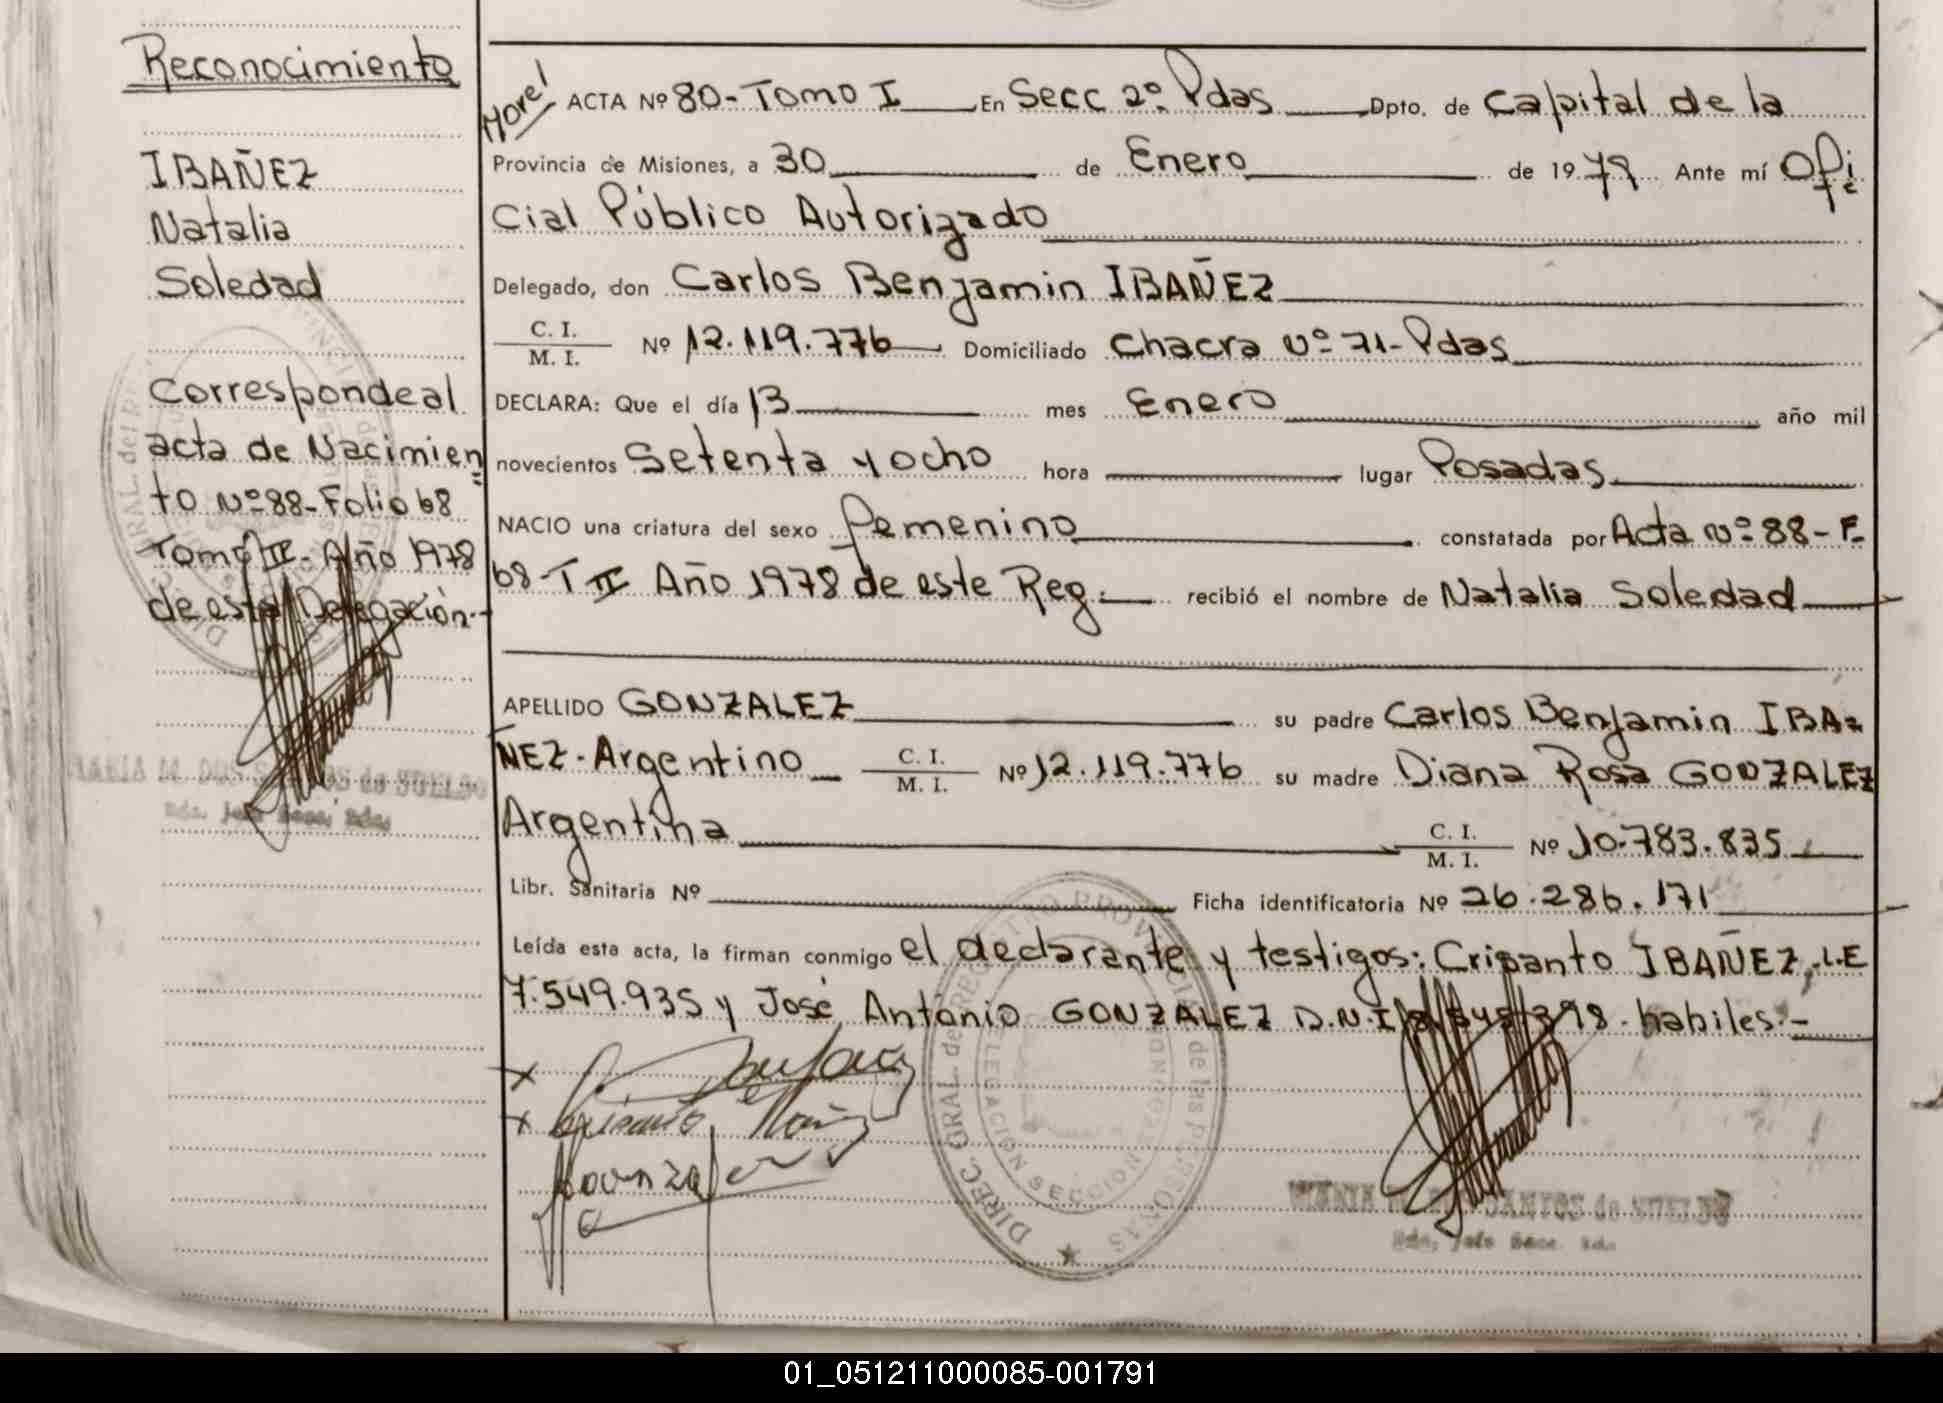 Reconocimiento
IBAÑEZ
Natalia
Soledad
Corresponde al
acta de Nacimien
to Nº 88-Folio 68
Tomo II - Año 1978
de esta Delegación.-
ACTA Nº 80-Tomo I En Secc 2º Pdas Dpto. de Capital de la
Provincia de Misiones, a 30 de Enero de 1979 Ante mí Ofi
cial Público Autorizado
Delegado, don Carlos Benjamin IBAÑEZ
C. I.
M. I. Nº 12.119.776 Domiciliado Chacra Nº 71-Pdas
DECLARA: Que el día 13 mes Enero año mil
novecientos Setenta y ocho hora lugar Posadas
NACIO una criatura del sexo femenino constatada por Acta Nº 88-F.
68-T II Año 1978 de este Reg. recibió el nombre de Natalia Soledad
APELLIDO GONZALEZ su padre Carlos Benjamin IBA=
ÑEZ-Argentino C. I. M. I. Nº 12.119.776 su madre Diana Rosa GONZALEZ
Argentina C. I. M. I. Nº 10.783.835
Libr. Sanitaria Nº Ficha identificatoria Nº 26.286.171
Leída esta acta, la firman conmigo el declarante y testigos: Crisanto IBAÑEZ, L.E
7.549.935 y José Antonio GONZALEZ D.N.I habiles.-
DIREC. GRAL. del REGISTRO PROVINCIAL de las PERSONAS
DELEGACION SECCION
01_051211000085-001791